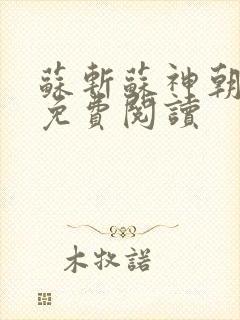 蘇斬蘇神朝
免費閱讀
木牧諾